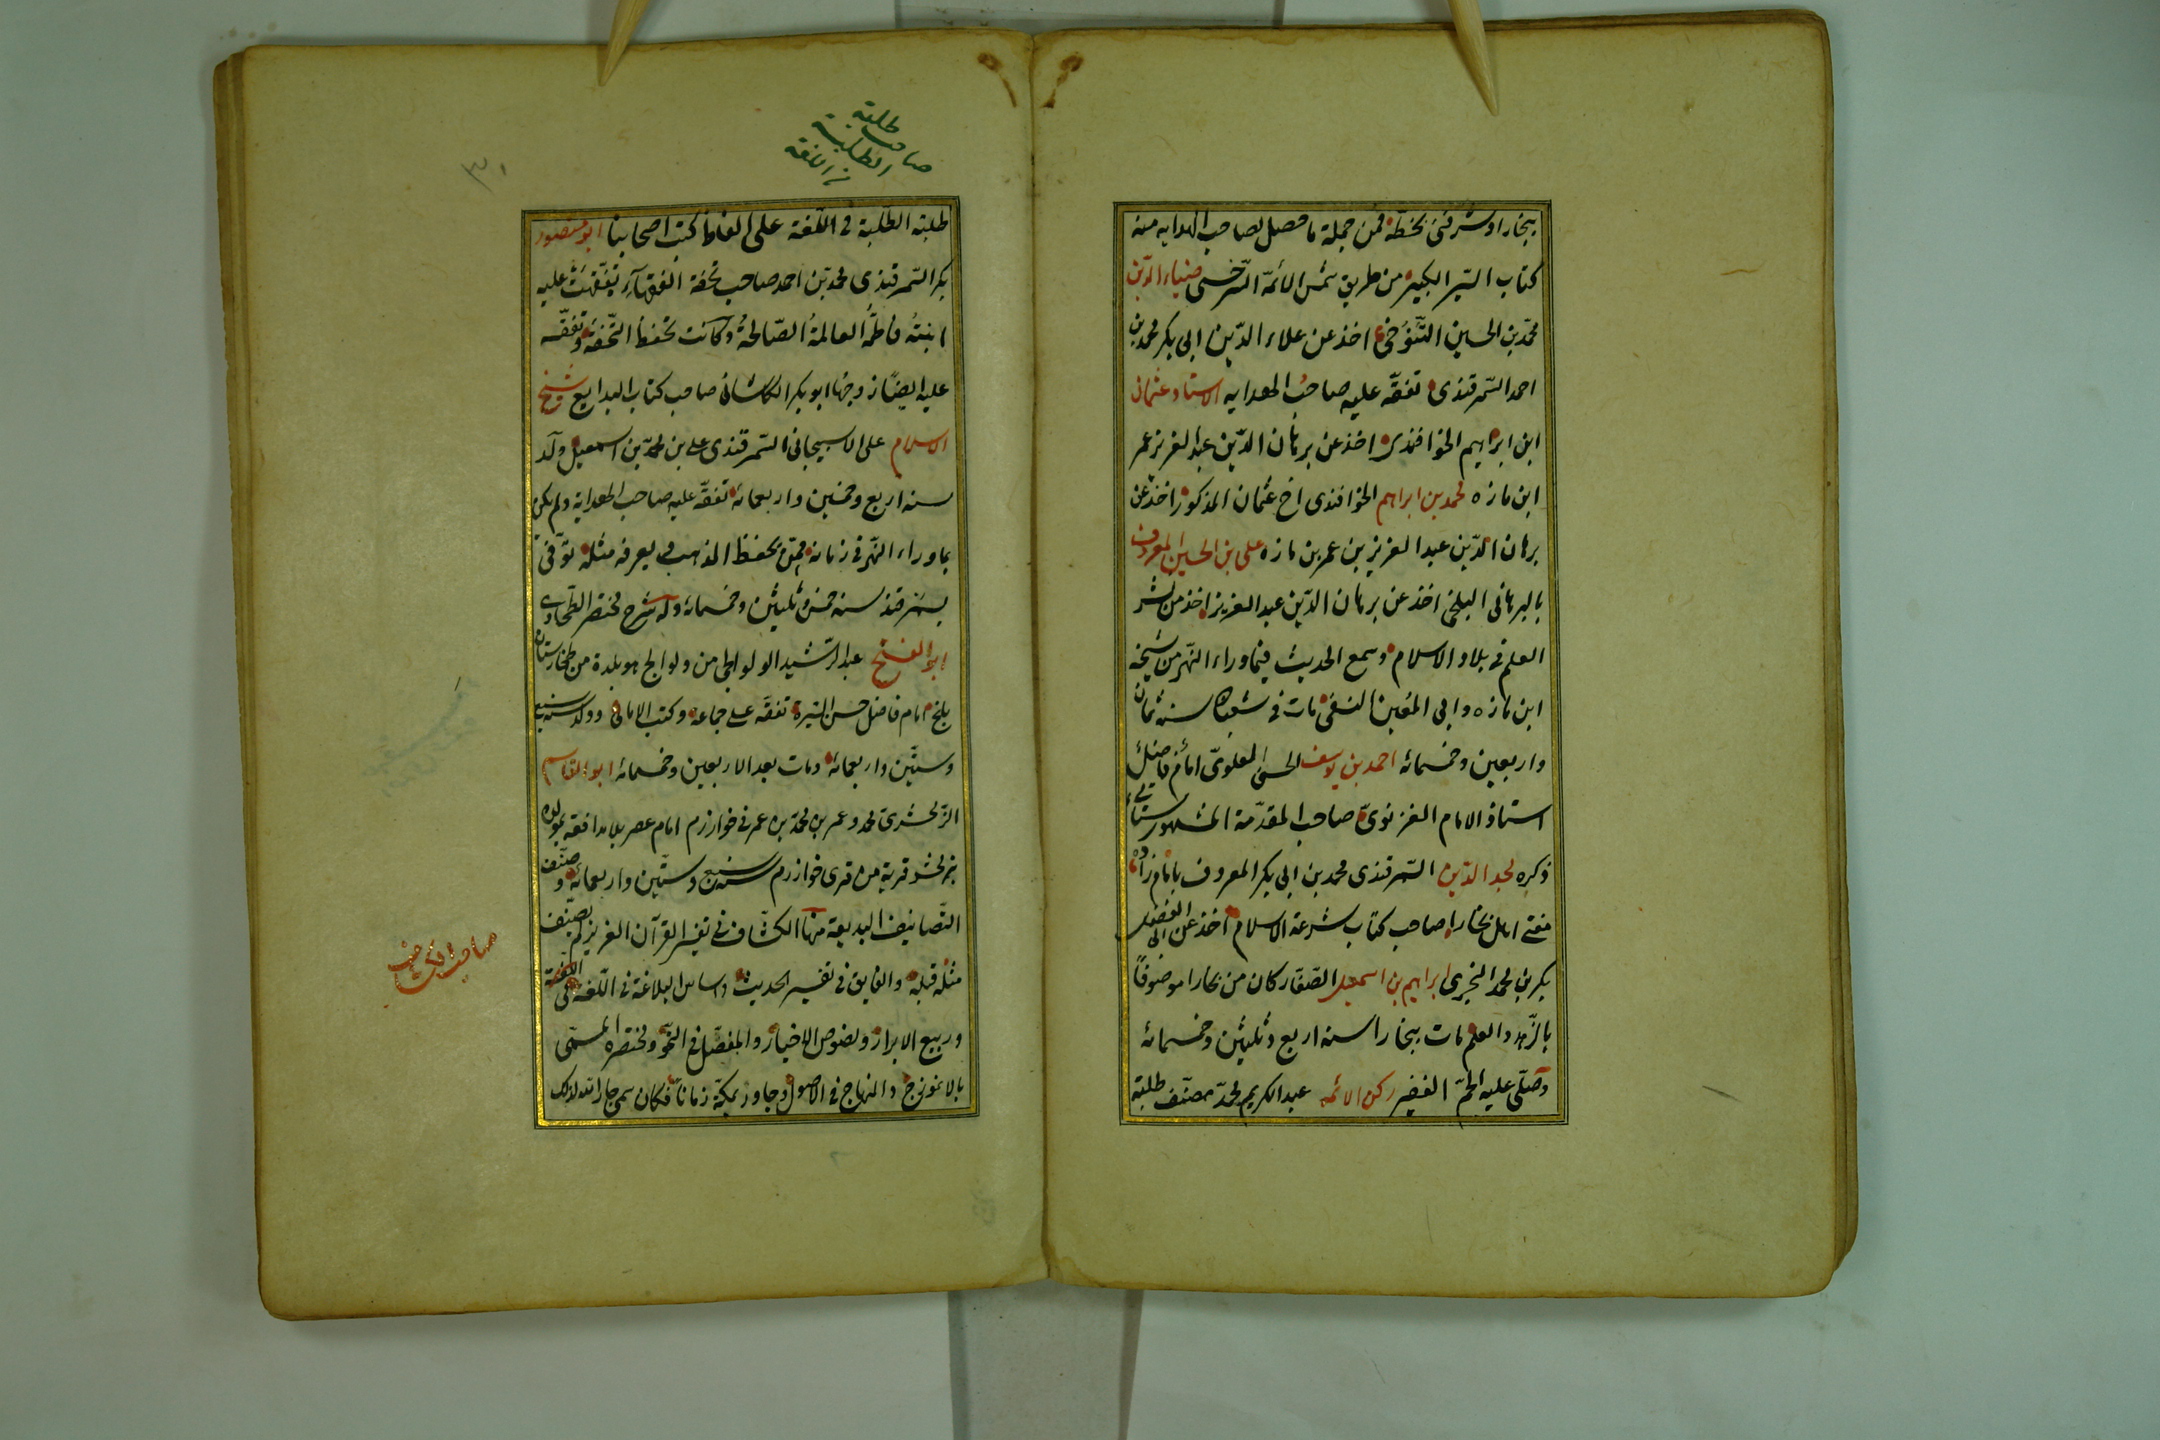 ببخارا وشرفنى بخطه فمن جملة ما حصل لصاحب الهدايه منه
كتاب السّير الكبير من طريق شمس الأئمّة السّرخسى ضياء الدّين
محمّد بن الحسين التّنوخى اخذ عن علاء الدّين ابى بكر محمد بن
احمد السّمرقندى تفقّه عليه صاحب الهدايه الاستاد عثمان
ابن ابراهيم الخواقندى اخذ عن برهان الدّين عبد العزيز عمر
ابن مازه محمد بن ابراهيم الخواقندى اخ عثمان المذكور اخذ عن
برهان الدّين عبد العزيز بن عمر بن مازه على بن الحسين المعروف
بالبرهانى البلخى اخذ عن برهان الدّين عبد العزيز اخذ من نشر
العلم فى بلاد الاسلام وسمع الحديث فيما وراء النّهر من شيخه
ابن مازه وابى المعين النسفى مات فى شعبان سنة ثمان
واربعين وخمسمائه احمد بن يوسف الحسنى العلوىّ امام فاضل
استاذ الامام الغزنوىّ صاحب المقدّمة المشهور سيأتى
ذكره مجد الدّين السّمرقندى محمد بن ابى بكر المعروف بامام زاده
مفتى اهل بخارا صاحب كتاب شرعة الاسلام اخذ عن ابى الفضل
بكر بن محمد الزرنجرى ابراهيم بن اسمعيل الصّفار كان من بخارا موصوفاً
بالزّهد والعلم مات ببخارا سنة اربع وثلثين وخمسمائه
وصلّى عليه الجمّ الغفير ركن الائمه عبد الكريم محمّد مصنّف طلبة
صاحب طلبة
الطلبة
فى اللغة
٣٠
طلبة الطّلبة فى اللّغة على الفاظ كتب اصحابنا ابو منصور
بكر السّمرقندى محمد بن احمد صاحب تحفة الفقهاء تفقّهت عليه
ابنته فاطمة العالمة الصّالحة وكانت تحفظ التّحفة وتفقّه
عليه ايضا زوجها ابو بكر الكاشانى صاحب كتاب البدايع وشيخ
الاسلام على الاسبيجابى السّمرقندى على بن محمّد بن اسمعيل ولد
سنة اربع وخمسين واربعمائة تفقّه عليه صاحب الهداية ولم يكن
بما وراء النّهر فى زمانه ممّن يحفظ المذهب ويعرفه مثله توفّى
بسمرقند سنة خمس وثلثين وخمسمائة وله شرح مختصر الطّحاوى
ابو الفتح عبد الرّشيد الولوالجى من ولوالج هو بلدة من طخارستان
بلخ امام فاضل حسن السّيرة تفقّه على جماعة وكتب الامالى وولد سنة سبع
وستّين واربعمائة ومات بعد الاربعين وخمسمائه ابو القاسم
الزمخشرى محمود عمر بن محمّد بن عمر فى خوارزم امام عصر بلا مدافعة مولده
بزمخشر قرية من قرى خوارزم سنة سبع وستّين واربعمائة وصنّف
التّصانيف البديعة منها الكشّاف فى تفسير القرآن العزيز لم يصنّف
مثله قبله والفايق فى تفسير الحديث واساس البلاغة فى اللّغة
وربيع الابرار ونصوص الاخيار والمفصّل فى النّحو ومختصره المسمّى
بالانموذج والمنهاج فى الاصول وجاور بمكّة زماناً فكان سمّى جار الله لذلك
صاحب الكشاف